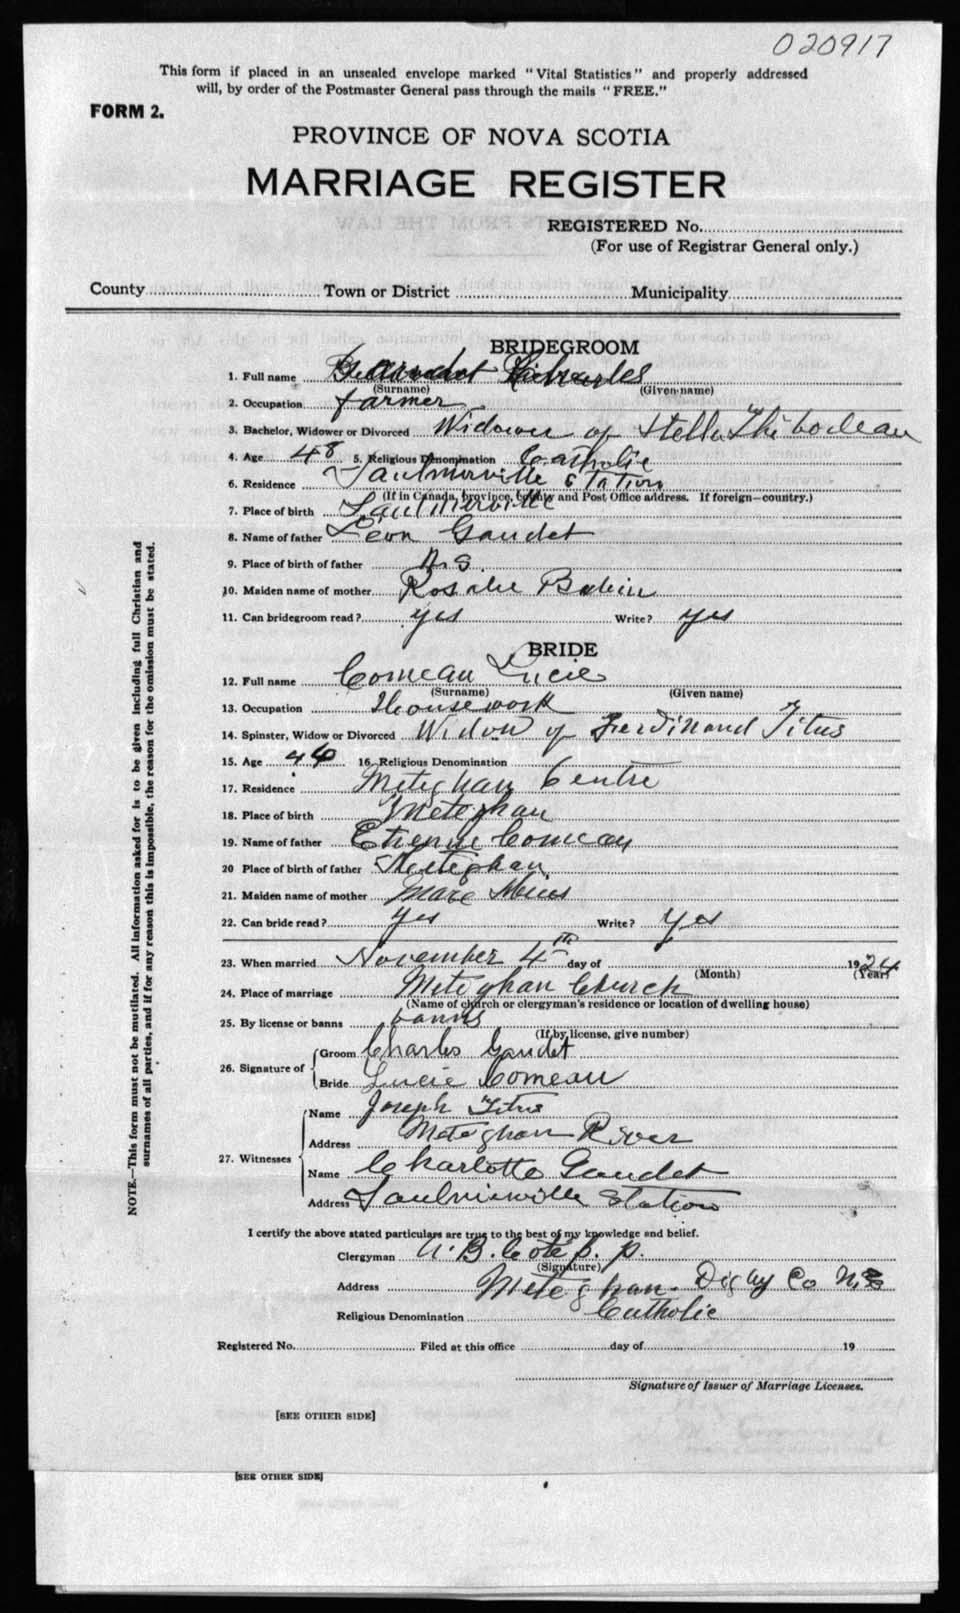 020917
This form if placed in an unsealed envelope marked "Vital Statistics" and properly addressed
will, by order of the Postmaster General pass through the mails "FREE."
FORM 2.
PROVINCE OF NOVA SCOTIA
MARRIAGE REGISTER
REGISTERED No.
(For use of Registrar General only.)
County Town or District Municipality
BRIDEGROOM
1. Full name Charles
(Surname) (Given name)
2. Occupation farmer
3. Bachelor, Widower or Divorced Widower of Stella Thibodeau
4. Age 48 5. Religious Denomination Catholic
6. Residence Saulnierville Station
(If in Canada, province, County and Post Office address. If foreign—country.)
7. Place of birth Saulnierville
8. Name of father Léon Gaudet
9. Place of birth of father N.S.
10. Maiden name of mother Rosalie Babin
11. Can bridegroom read? yes Write? yes
BRIDE
12. Full name Comeau Lucie
(Surname) (Given name)
13. Occupation Housework
14. Spinster, Widow or Divorced Widow of Ferdinand Titus
15. Age 46 16. Religious Denomination
17. Residence Meteghan Centre
18. Place of birth Meteghan
19. Name of father Etienne Comeau
20 Place of birth of father Meteghan
21. Maiden name of mother Marie Mius
22. Can bride read? yes Write? yes
23. When married November 4th day of 1924
(Month) (Year)
24. Place of marriage Meteghan Church
(Name of church or clergyman's residence or location of dwelling house)
25. By license or banns banns
(If by license, give number)
26. Signature of
Groom Charles Gaudet
Bride Lucie Comeau
27. Witnesses
Name Joseph Titus
Address Meteghan River
Name Charlotte Gaudet
Address Saulnierville Station
I certify the above stated particulars are true to the best of my knowledge and belief.
Clergyman A. B. Coté p. p.
(Signature)
Address Meteghan. Digby Co N.S
Religious Denomination Catholic
Registered No. Filed at this office day of 19
Signature of Issuer of Marriage Licenses.
[SEE OTHER SIDE]
[SEE OTHER SIDE]
NOTE.—This form must not be mutilated. All information asked for is to be given including full Christian and
surnames of all parties, and if for any reason this is impossible, the reason for the omission must be stated.